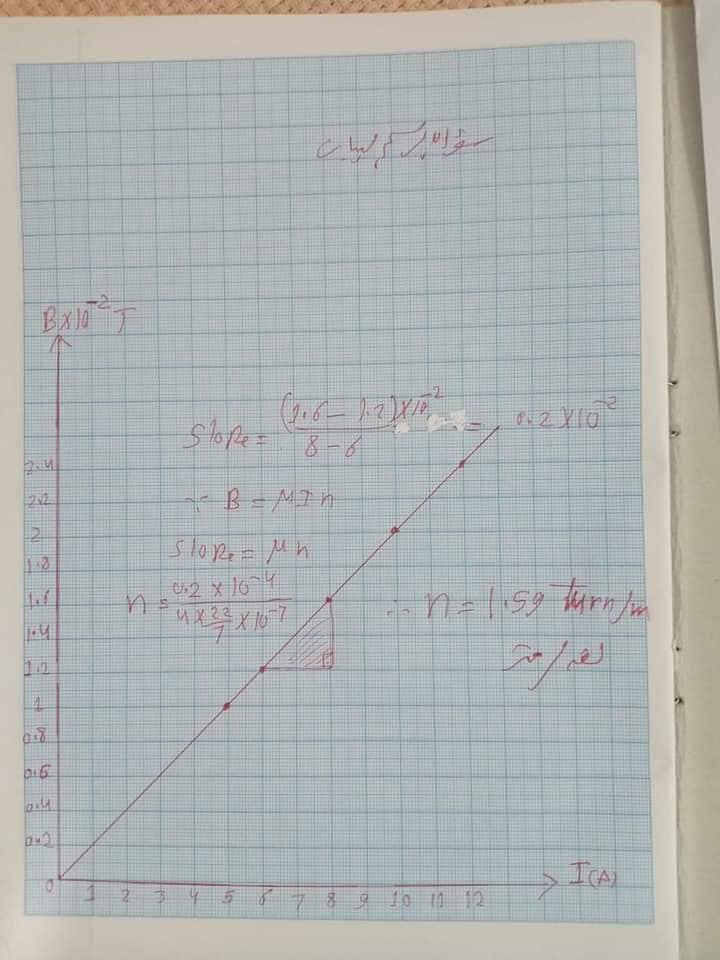 B×10⁻² T
Slope = (1.6 – 1.2)×10⁻² / 8 – 6 = 0.2×10⁻²
∵ B = μIn
Slope = μn
n = 0.2×10⁻⁴ / 4×22/7×10⁻⁷
∴ n = 1.59 turn/m
لفه/متر
2.4
2.2
2
1.8
1.6
1.4
1.2
1
0.8
0.6
0.4
0.2
0 1 2 3 4 5 6 7 8 9 10 11 12 I(A)